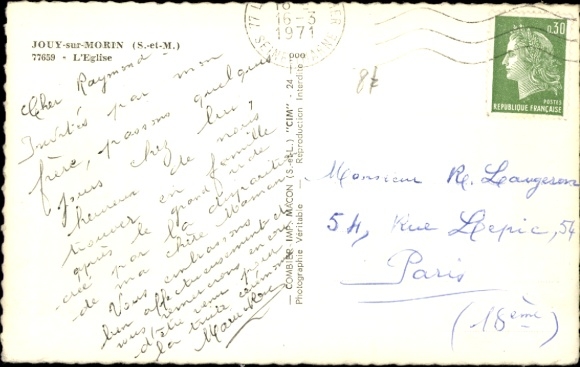 JOUY-sur-MORIN (S.-et-M.)
77659 - L'Eglise
Cher Raymond
Invités par mon
frère, passons quelques
jours chez lui,
heureux de nous
trouver en famille
après le grand vide
créé par la disparition
de ma chère Maman
Vous embrassons
bien affectueusement et
vous remercions encore
d'être venu pour
la triste cérémonie
— COMBIER IMP. MACON (S.-et-L.) "CIM" - 24 - 000
Photographie Véritable - Reproduction Interdite
16-3
1971
SEINE
0,30
POSTES
REPUBLIQUE FRANÇAISE
Monsieur R. Laugeron
54, Rue Lepic, 54
Paris
(18ème)